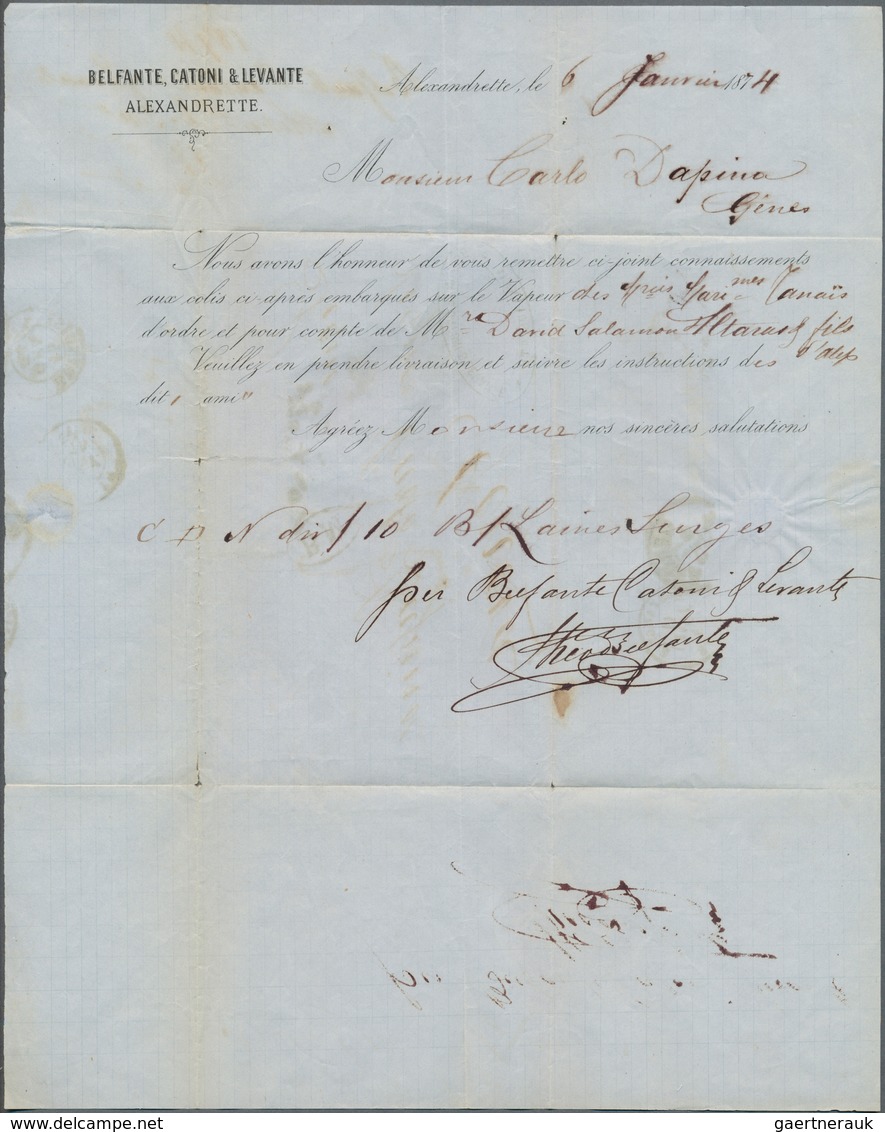 BELFANTE, CATONI & LEVANTE
ALEXANDRETTE.
Alexandrette, le 6 Janvier 1874
Monsieur Carlo Dapino
Gênes
Nous avons l'honneur de vous remettre ci-joint connaissements
aux colis ci-après embarqués sur le Vapeur des Mari mes Tanaïs
d'ordre et pour compte de M rs David Salamon Altaras & fils
d'alep
Veuillez en prendre livraison et suivre les instructions des
dits amis
Agréez Monsieur nos sincères salutations
C D N div / 10 B/ Laines Surges
per Belfante Catoni & Levante
Belfante
gaertnerauk